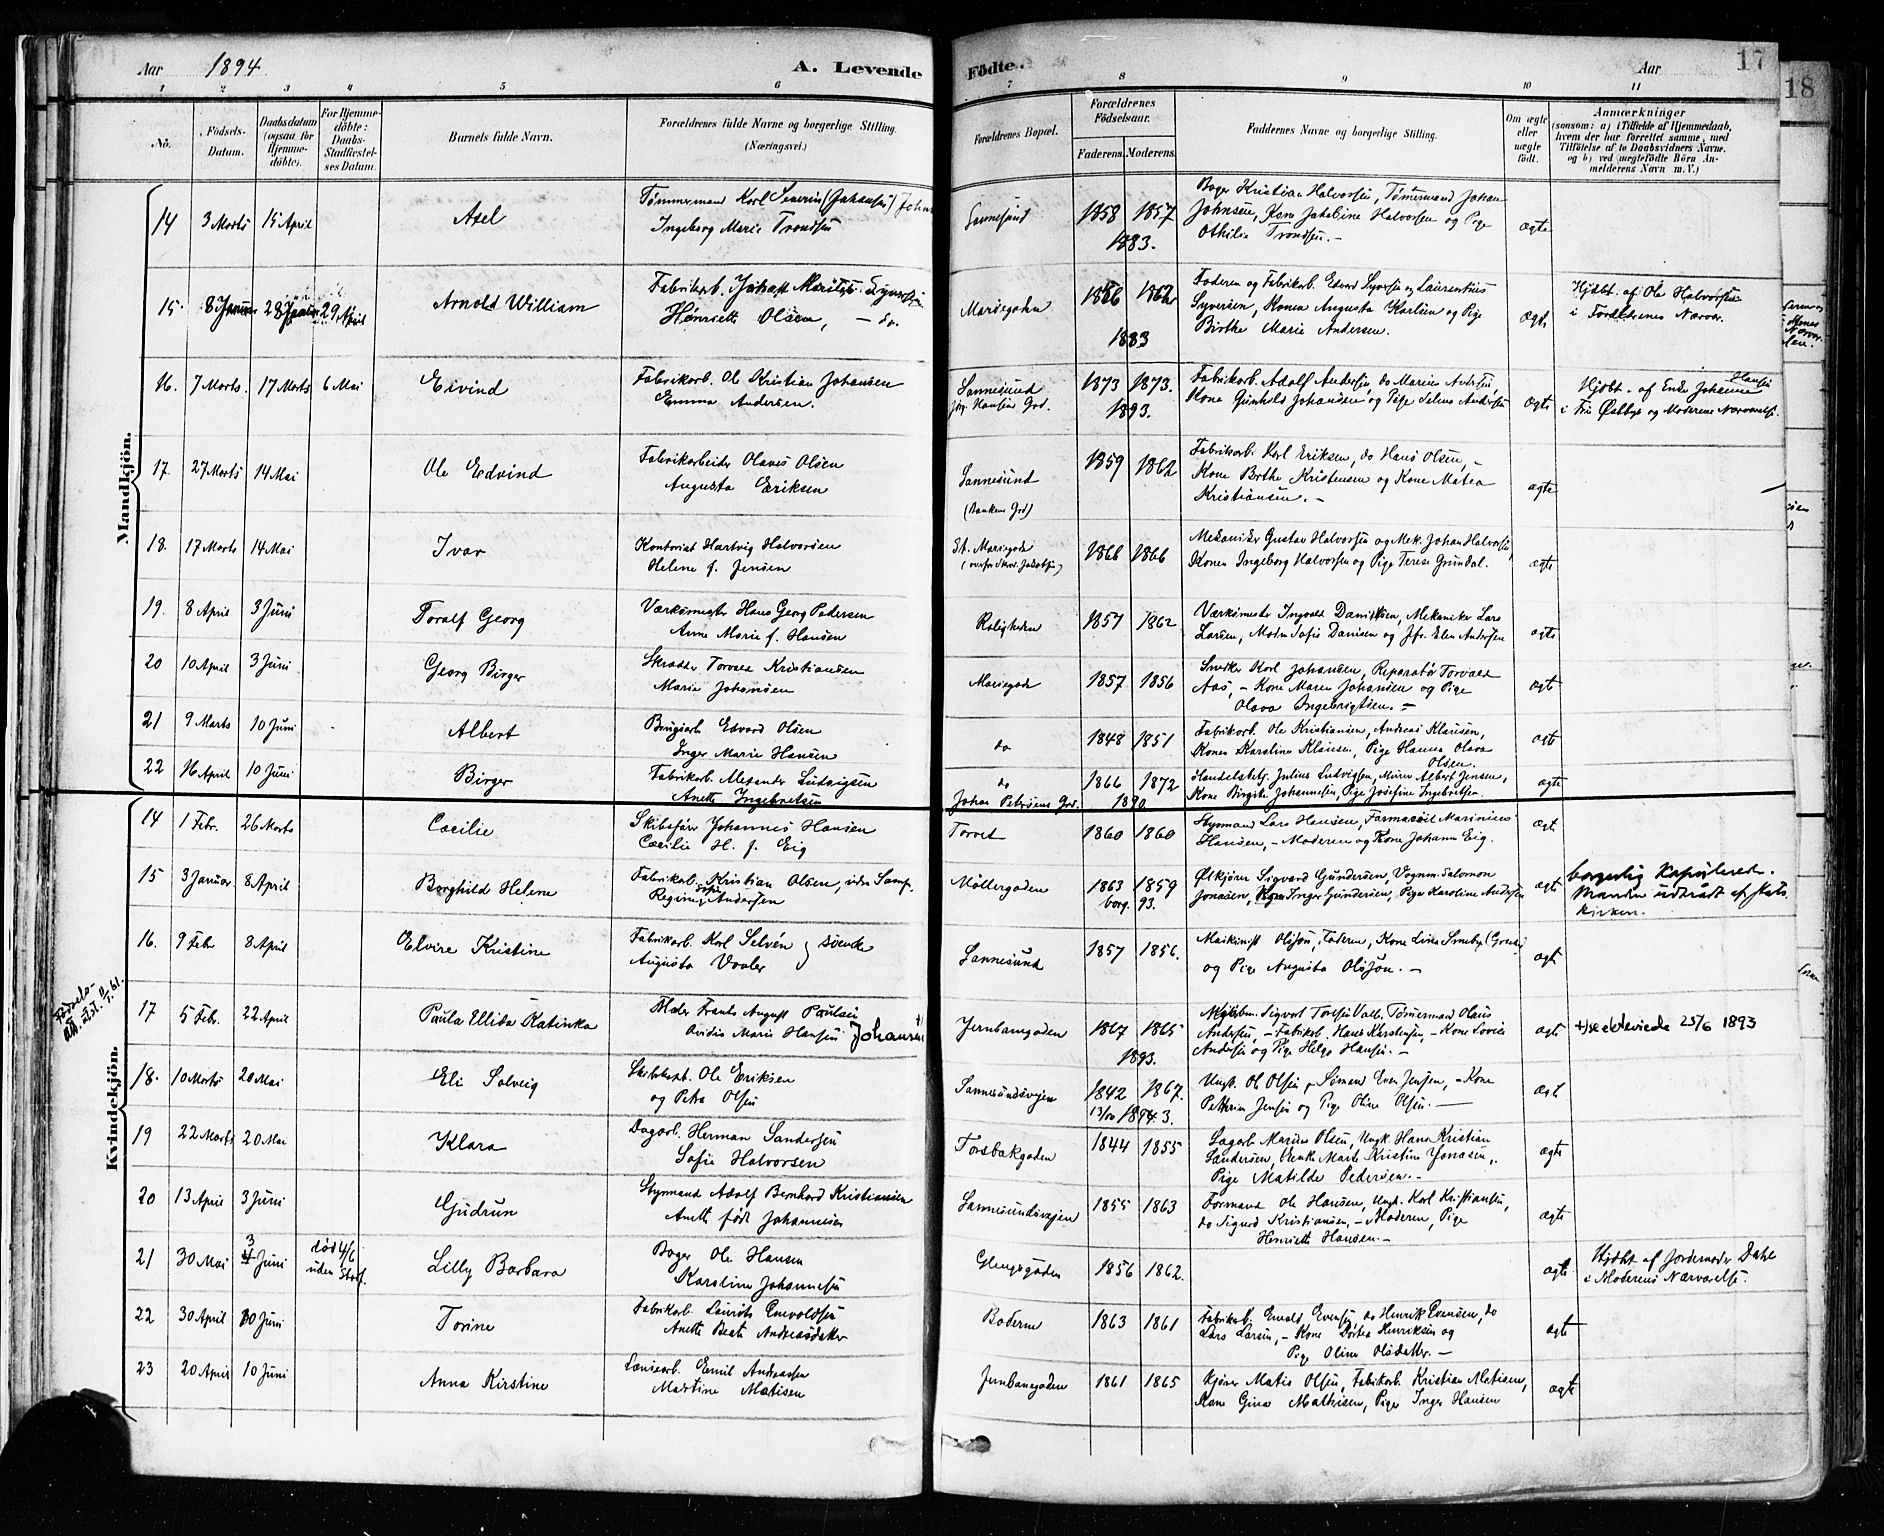 Aar 1894. A. Levende Födte. Aar 17
18
1 2 3 4 5 6 7 8 9 10 11
No. Födsels-Datum. Daabsdatum (ogsaa for Hjemmedöbte). For Hjemmedöbte: Daabs-Stadfæstelses Datum. Barnets fulde Navn. Forældrenes fulde Navne og borgerlige Stilling. (Næringsvei.) Forældrenes Bopæl. Forældrenes Födselsaar. Faderens. Moderens. Faddernes Navne og borgerlige Stilling. Om ægte eller uægte födt. Anmærkninger (saasom: a) i Tilfælde af Hjemmedaab, hvem der har forrettet samme, med Tilföielse af to Daabsvidners Navne, og b) ved uegtefödte Börn Anmelderens Navn m. V.)
Mandkjön.
14 3 Marts 15 April Axel Tømmermand Karl Severin (Johansen)
Ingeborg Marie Trondsen Sannesund 1858 1857 1883. Bager Kristian Halvorsen, Tømmermand Johan
Johnsen, Kone Jakobine Halvorsen og Pige
Othilie Trondsen. — ægte
15. 8 Januar 28 29 April Arnold William Fabrikarb.
Henriette Olsen, — do. Mariegaden 1862 1883 Faderen og Fabrikarb. Edvard Syversen og Laurentius
Syversen, Konen Augusta Karlsen og Pige
Birthe Marie Andersen. ægte Hjdbt. af Ole Halvorsen
i Forældrenes Nærvær.
16. 7 Marts 17 Marts 6 Mai Eivind Fabrikarb. Ole Kristian Johansen
Emma Andersen. Sannesund
Hansens Grd. 1873 1873. 1893. Fabrikarb. Adolf Andersen, do Marius Andersen,
Kone Gunhild Johansen og Pige Selma Andersen ægte Hjdbt. af Enke Johanne Hansen
i Fru Østbys og Moderens Nærværelse.
17. 27 Marts 14 Mai Ole Edvind Fabrikarbeider Olaves Olsen
Augusta Eriksen Sannesund
(Bankens Grd) 1859 1862 Fabrikarb. Karl Eriksen, do Hans Olsen, —
Kone Berthe Kristensen og Kone Matea
Kristiansen. — ægte
18. 17 Marts 14 Mai Ivar Kontorist Hartvig Halvorsen
Helene f. Jensen St. Mariegade 1866 1866 Mekaniker Gustav Halvorsen og Mek. Johan Halvorsen,
Konen Ingeborg Halvorsen og Pige Terese Grundal. ægte
19. 8 April 3 Juni Toralf Georg Værksmester Hans Georg Pedersen
Anne Marie f. Hansen Roligheden 1857 1862 Værksmester Ingvald Danielsen, Mekaniker Lars
Larsen, Mdm Sofie Danielsen og Jfr. Elen Andersen ægte
20 10 April 3 Juni Georg Birger Skrædder Torvald Kristiansen
Marie Johansen Mariegade 1857 1856 Snedker Karl Johansen, Reparatør Torvald
Aas, — Kone Maren Johansen og Pige
Olava Ingebrigtsen. — ægte
21 9 Marts 10 Juni Albert Brugsarb Edvard Olsen
Inger Marie Hansen do 1848 1851 Fabrikarb. Ole Kristiansen, Andreas Klausen,
Konen Karoline Klausen, Pige Hanna Olava
Olsen. ægte
22 16 April 10 Juni Birger Fabrikarb. Alexander Ludvigsen
Anette Ingebretsen do
Johan Petersens Grd. 1866 1872 1890 Handelsbetj. Julius Ludvigsen, Murer Albert Jensen,
Kone Birgithe Johannesen, Pige Josefine Ingebretsen. ægte
Kvindekjön.
14 1 Febr. 26 Marts Cæcilie Skibsfører Johannes Hansen
Cæcilie H. f. Eig Torvet 1860 1860 Styrmand Lars Hansen, Farmaceut Marinius
Hansen, — Moderen og Kone Johanne Eig. ægt
15 3 Januar 8 April Borghild Helene Fabrikarb. Kristian Olsen, udenSamf.
Regine Sofie Andersen Møllergaden 1863 1859
borg. 93. Ølkjører Sigvard Gundersen, Vognm. Salomon
Jonassen, Kone Inger Gundersen, Pige Karoline Andersen ægt borgerlig Kopulerede.
Manden udtraadt af Stats
kirken.
16. 9 Febr 8 April Elvire Kristine Fabrikarb. Karl Selvén } svenske
Augusta Vaaler Sannesund 1857 1856. Maskinist Olsson, Faderen, Kone Lina Smeby (Greaker)
og Pige Augusta Olsson. — ægt
Fødsels-
att. utst.
17 5 Feb. 22 April Paula Ellida Katinka Maler Frants August Paulsen
Marie Hansen Johansen Jernbanegaden 1867 1865 1893. Sigvart Torfsen Tømmermand Olaus
Andersen, — Fabrikarb. Hans Karstensen, — Kone Lovise
Andersen og Pige Helga Hansen. — ægt ekteviede 25/6 1893
18. 10 Marts 20 Mai Eli Solveig Ole Eriksen
og Petra Olsen Sannesundsvejen 1842 1867. 1894. Ungk. Ol Olsen, Sømand Even Jensen, — Kone
Pethrine Jensen og Pige Oline Olsen. — ægt
19 22 Marts 20 Mai Klara Dagarb. Herman Sandersen
Sofie Halvorsen Torsbakgaden 1844 1855 Sagarb. Marius Olsen, Ungk. Hans Kristian
Sandersen, Enke Marte Kristine Jonasen,
Pige Matilde Pedersen. — ægte
20 13 April 3 Juni Gudrun Styrmand Adolf Bernhard Kristiansen
Anette født Johannesen Sannesundsvejen 1855 1863 Formand Ole Hansen, Ungk. Karl Kristiansen,
do Sigurd Kristiansen, — Moderen, Pige
Henriette Hansen. — ægte
21 30 Mai 3 Juni død 4/6
uden Stadf. Lilly Barbara Bager Ole Hansen
Karoline Johannesen Glengsgaden 1856 1862. ægte Hjdbt af Jordemoder Dahl
i Moderens Nærværelse.
22 30 April 10 Juni Torine Fabrikarb. Laurits Enevoldsen
Anette Beate Andreasdatter Boderne 1863 1861 Fabrikarb. Enevald Evensen, do Henrik Evensen, do
Lars Larsen, — Kone Dortea Henriksen og
Pige Oline Olsdatter. — ægte
23 20 April 10 Juni Anna Kirstine Lænsearb. Emil Andreassen
Martine Matisen Jernbanegaden 1861 1865 Kjører Matis Olsen, Fabrikarb. Kristian Matisen,
Kone Gina Mathisen, Pige Inger Hansen ægte